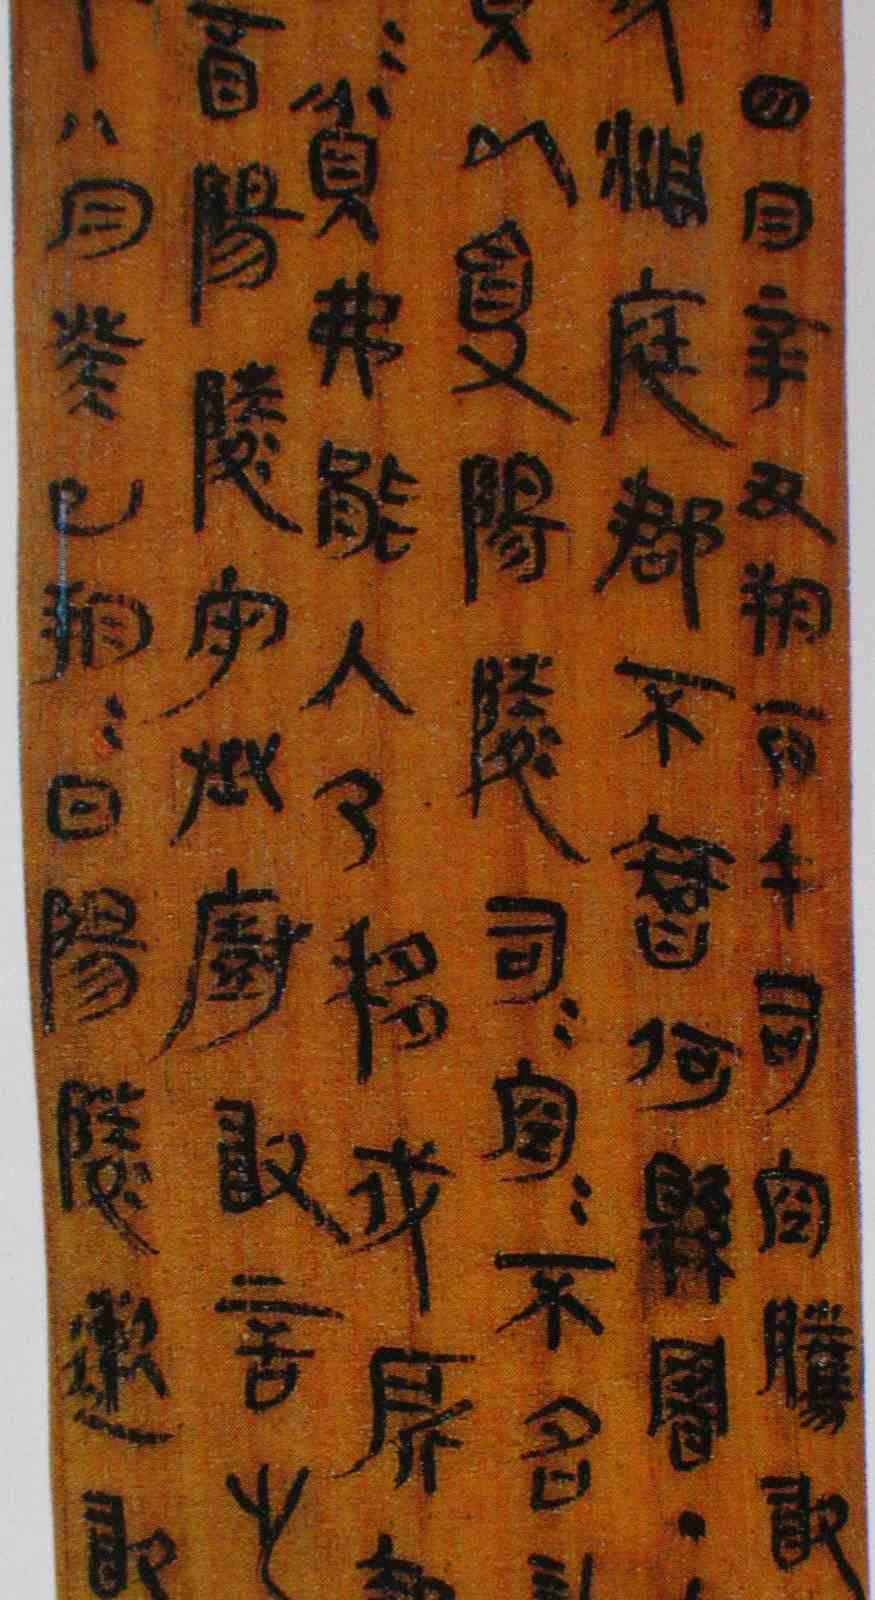 四月辛丑朔丙午司空騰敢
洞庭郡不智何縣署・
以受陽陵司=空=不名計
=貧弗能入乃移戍所報
酉陽陵守丞廚敢言之
八月癸巳朔=日陽陵遬敢